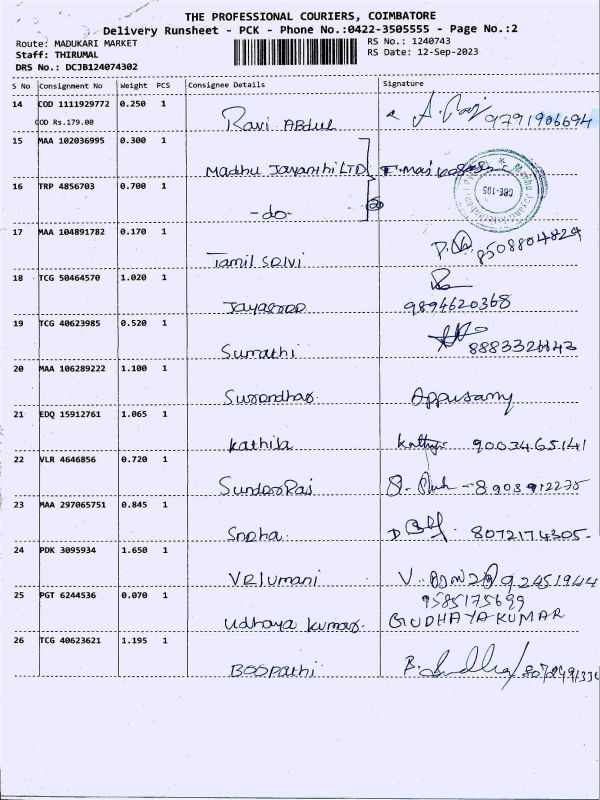 THE PROFESSIONAL COURIERS, COIMBATORE
Delivery Runsheet - PCK - Phone No.:0422-3505555 - Page No.:2
Route: MADUKARI MARKET
RS No.: 1240743
Staff: THIRUMAL
RS Date: 12-Sep-2023
DRS No.: DCJB124074302
S No Consignment No Weight PCS Consignee Details Signature
14 COD 1111929772 0.250 1
COD Rs.179.00 Ravi Abdul 9791906694
15 MAA 102036995 0.300 1
Madhu Jayanthi LTD
CBE-105
16 TRP 4856703 0.700 1
-do-
17 MAA 104891782 0.170 1
Tamil Selvi 8508804829
18 TCG 50464570 1.020 1
9894620368
19 TCG 40623985 0.520 1
Sumathi
20 MAA 106289222 1.100 1
Surendhar Appusamy
21 EDQ 15912761 1.065 1
Kathija 9003465141
22 VLR 4646856 0.720 1
Sunder Raj
23 MAA 297065751 0.845 1
Sneha 8072174305-
24 PDK 3095934 1.650 1
Velumani V.
25 PGT 6244536 0.070 1
9585175699
Udhaya kumar. G.UDHAYAKUMAR
26 TCG 40623621 1.195 1
Boopathi B.